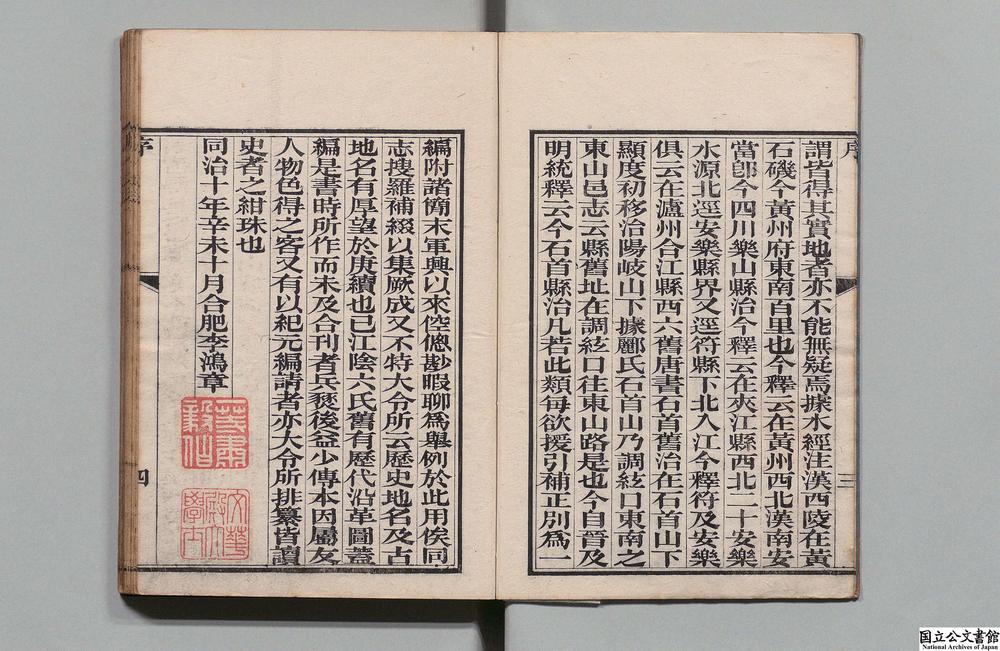 序
謂皆得其實地者亦不能無疑焉據水經注漢西陵在黃
石磯今黃州府東南百里也今釋云在黃州西北漢南安
當卽今四川樂山縣治今釋云在夾江縣西北二十安樂
水源北逕安樂縣界又逕符縣下北入江今釋符及安樂
俱云在瀘州合江縣西六舊唐書石首舊治在石首山下
顯度初移治陽岐山下據酈氏石首山乃調絃口東南之
東山邑志云縣舊址在調絃口往東山路是也今自晉及
明統釋云今石首縣治凡若此類每欲援引補正別爲一
三
編附諸簡末軍興以來倥傯尠暇聊爲舉例於此用俟同
志搜羅補綴以集厥成又不特大令所云歷史地名及古
地名有厚望於庚續也已江陰六氏舊有歷代沿革圖蓋
編是書時所作而未及合刊者兵燹後益少傳本因屬友
人物色得之客又有以紀元編請者亦大令所排纂皆讀
史者之紺珠也
同治十年辛未十月合肥李鴻章
肅毅伯
文華殿大學士
序
四
国立公文書館
National Archives of Japan